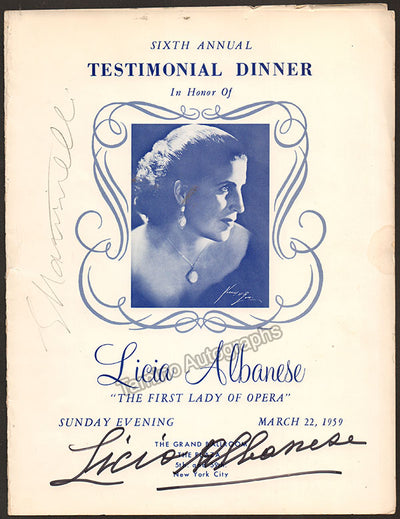 SIXTH ANNUAL
TESTIMONIAL DINNER
In Honor Of
Licia Albanese
Tamino Autographs
"THE FIRST LADY OF OPERA"
SUNDAY EVENING MARCH 22, 1959
THE GRAND BALLROOM
THE PLAZA
5th and 59th
New York City
Licia Albanese